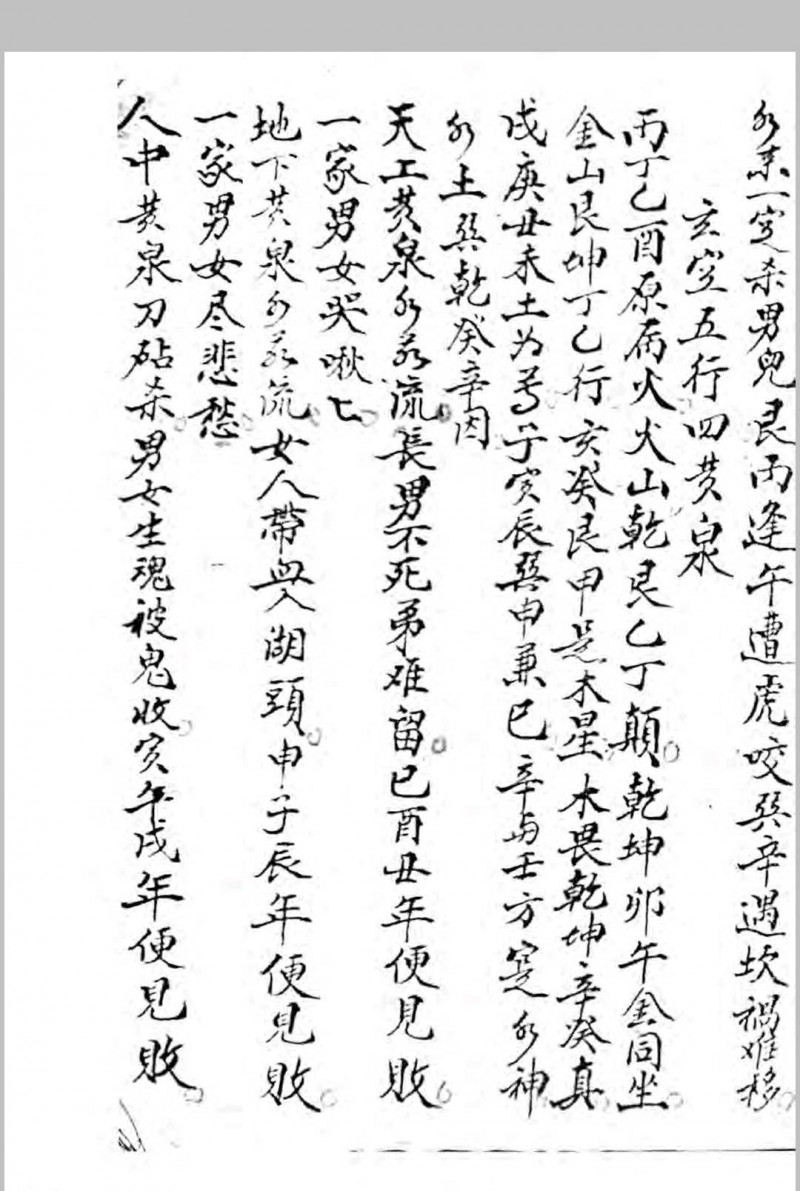 水来一定杀男兒艮丙逢午遭虎咬巽辛遇坎禍难移
玄空五行四黄泉
丙丁乙酉原屬火火山乾艮乙丁顛乾坤卯午金同坐
金山艮坤丁乙行亥癸艮甲是木星木畏乾坤辛癸真
戌庚丑未土为尊子寅辰巽申兼巳辛与壬方寔水神
水土巽乾癸辛因
天工黄泉水若流長男不死弟难留巳酉丑年便見敗
一家男女哭啾七
地下黄泉水若流女人帶血入湖頭申子辰年便見敗
一家男女尽悲愁
人中黄泉刀砧杀男女生魂被鬼收寅午戌年便見敗